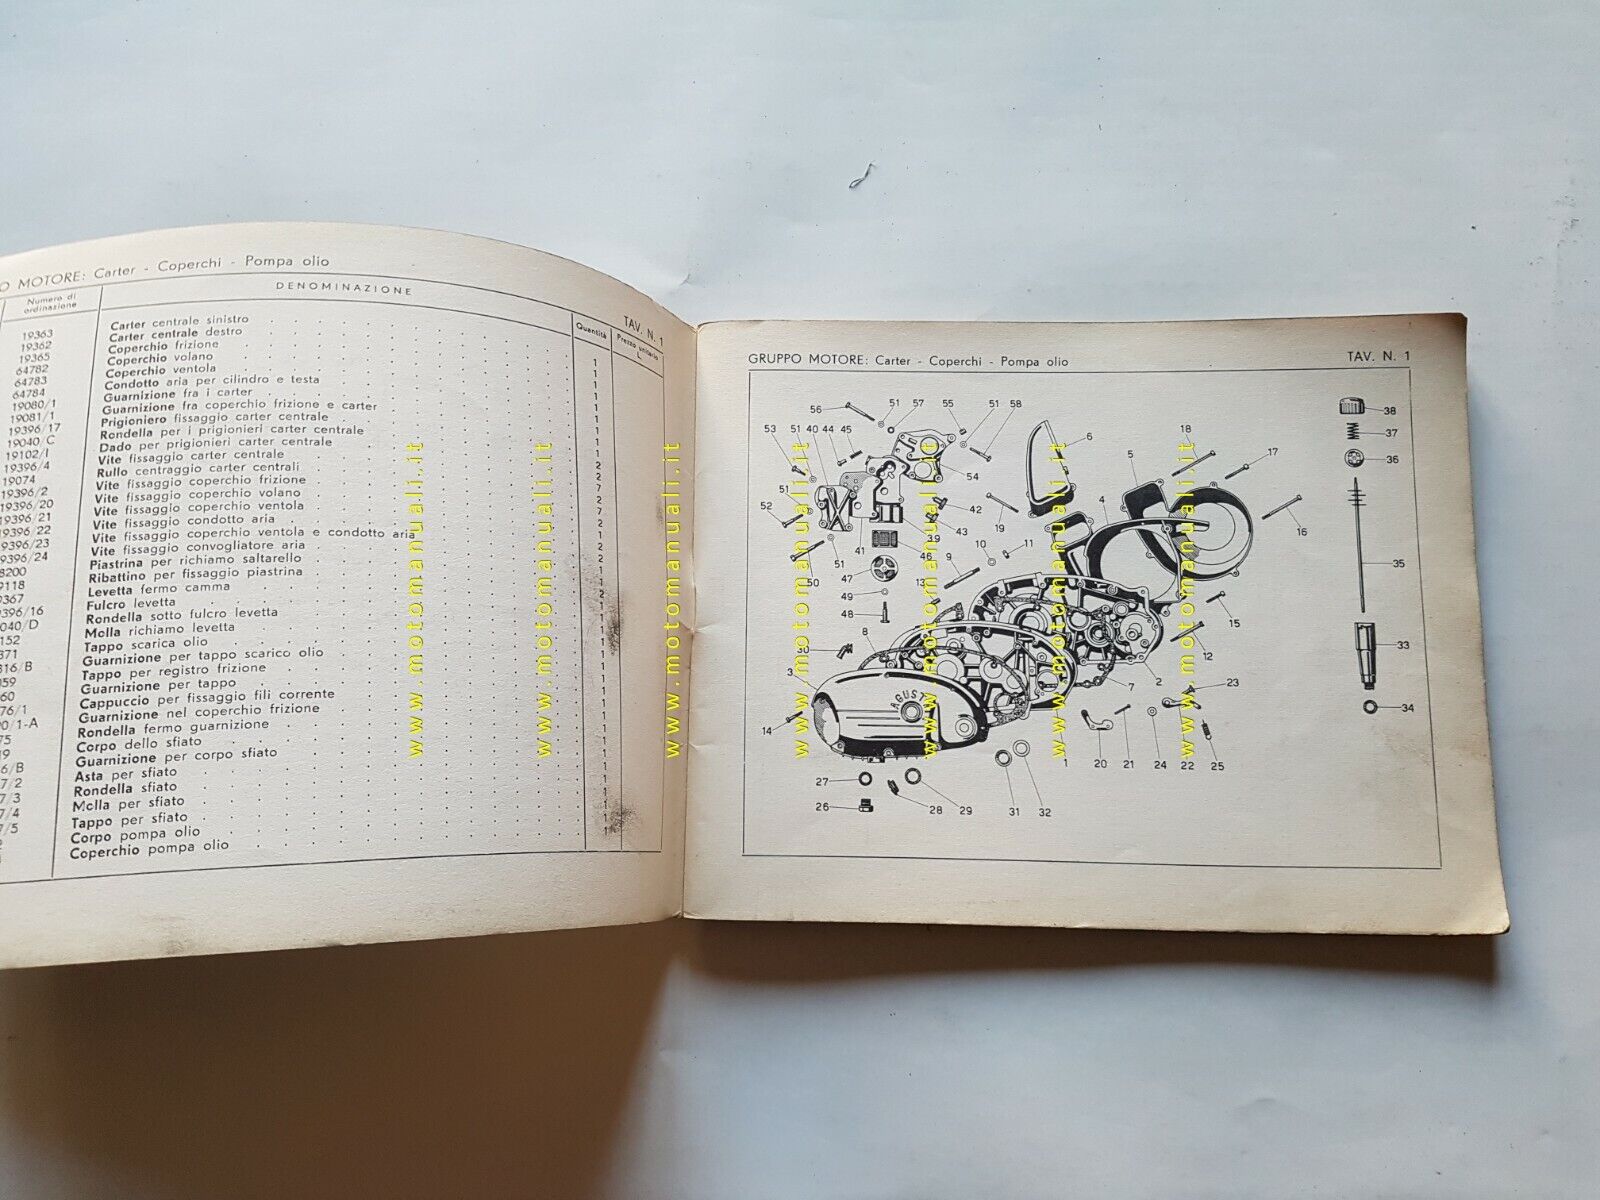 O MOTORE: Carter - Coperchi - Pompa olio
TAV. N. 1
Numero di ordinazione
DENOMINAZIONE
Quantità
Prezzo unitario L.
19363 Carter centrale sinistro
19362 Carter centrale destro
19365 Coperchio frizione
64782 Coperchio volano
64783 Coperchio ventola
64784 Condotto aria per cilindro e testa
19080/1 Guarnizione fra i carter
19081/1 Guarnizione fra coperchio frizione e carter
19396/17 Prigioniero fissaggio carter centrale
19040/C Rondella per i prigionieri carter centrale
19102/I Dado per prigionieri carter centrale
19396/4 Vite fissaggio carter centrale
19074 Rullo centraggio carter centrali
19396/2 Vite fissaggio coperchio frizione
19396/20 Vite fissaggio coperchio volano
19396/21 Vite fissaggio coperchio ventola
19396/22 Vite fissaggio condotto aria
19396/23 Vite fissaggio coperchio ventola e condotto aria
19396/24 Vite fissaggio convogliatore aria
8200 Piastrina per richiamo saltarello
9118 Ribattino per fissaggio piastrina
9367 Levetta fermo camma
396/16 Fulcro levetta
040/D Rondella sotto fulcro levetta
152 Molla richiamo levetta
371 Tappo scarica olio
316/B Guarnizione per tappo scarico olio
059 Tappo per registro frizione
60 Guarnizione per tappo
76/1 Cappuccio per fissaggio fili corrente
0/1-A Guarnizione nel coperchio frizione
75 Rondella fermo guarnizione
19 Corpo dello sfiato
6/B Guarnizione per corpo sfiato
7/2 Asta per sfiato
7/3 Rondella sfiato
7/4 Molla per sfiato
7/5 Tappo per sfiato
Corpo pompa olio
Coperchio pompa olio
GRUPPO MOTORE: Carter - Coperchi - Pompa olio
TAV. N. 1
56 51 57 55 51 58
53 51 40 44 45
6 18 17
5
38
37
36
54
51
52
42
4
19
43
16
39
41
46
10 11
50 51
47
13 9
49
48
35
15
8
30
12
33
3
7 2
23
AGUSTA
34
14
1 20 21 24 22 25
27
28 29 31 32
26
www.motomanuali.it
www.motomanuali.it
www.motomanuali.it
www.motomanuali.it
www.motomanuali.it
www.motomanuali.it
www.motomanuali.it